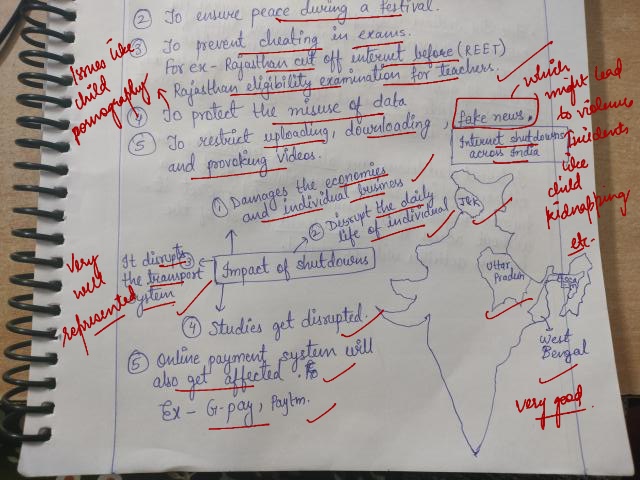 ② To ensure peace during a festival.
③ To prevent cheating in exams.
For ex- Rajasthan cut off internet before (REET)
Rajasthan eligibility examination for teachers.
④ To protect the misuse of data, fake news.
⑤ To restrict uploading, downloading
and provoking videos.
Issues like
child
pornography
which
might lead
to violence
incidents
like
child
kidnapping
etc-
Internet shutdowns
across India
J&K
Uttar
Pradesh
West
Bengal
very good
① Damages the economies
and individual business
② Disrupt the daily
life of individual
Impact of shutdowns
③ It disrupts
the transport
system
Very
well
represented
④ Studies get disrupted.
⑤ Online payment system will
also get affected.
Ex- G-pay, Paytm.